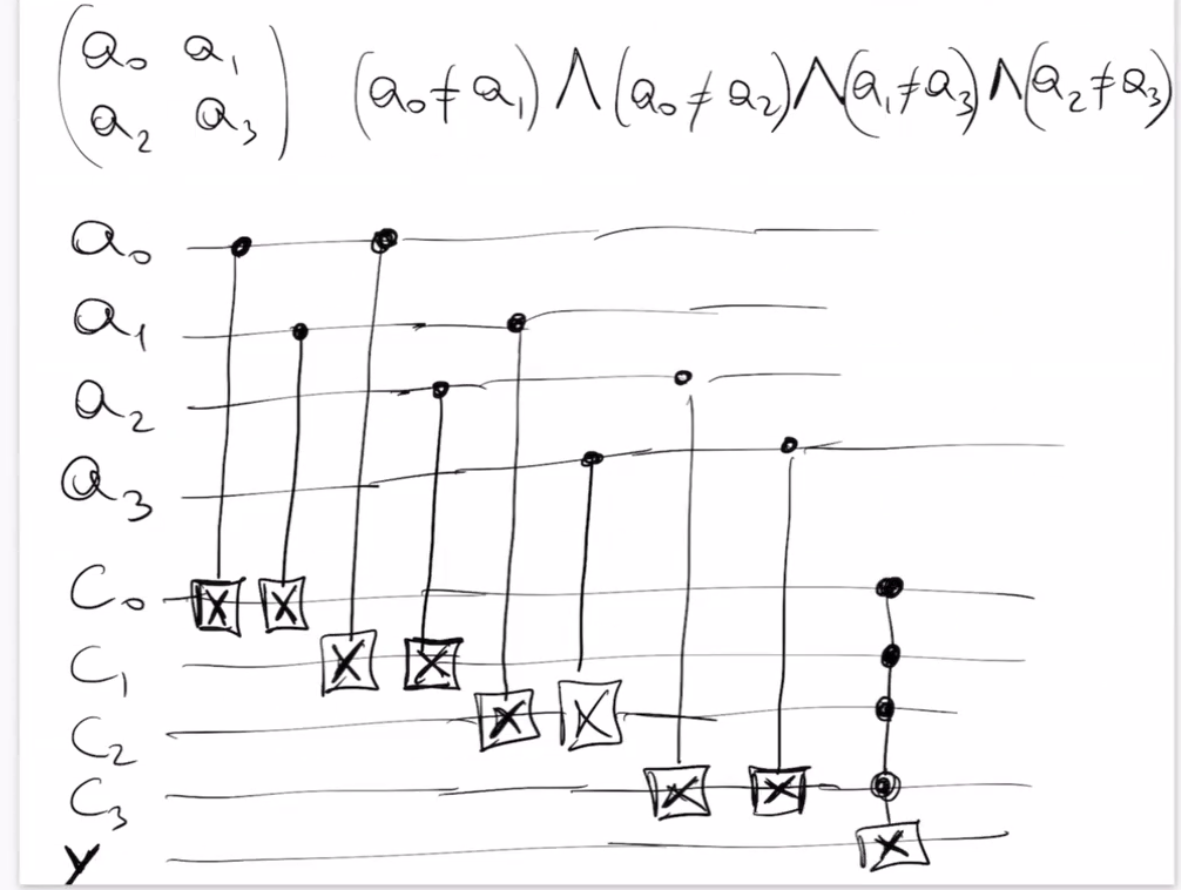 a₀ a₁ (a₀≠a₁)∧(a₀≠a₂)∧(a₁≠a₃)∧(a₂≠a₃)
a₂ a₃
a₀
a₁
a₂
a₃
C₀ X X
C₁ X X
C₂ X X
C₃ X X
y X